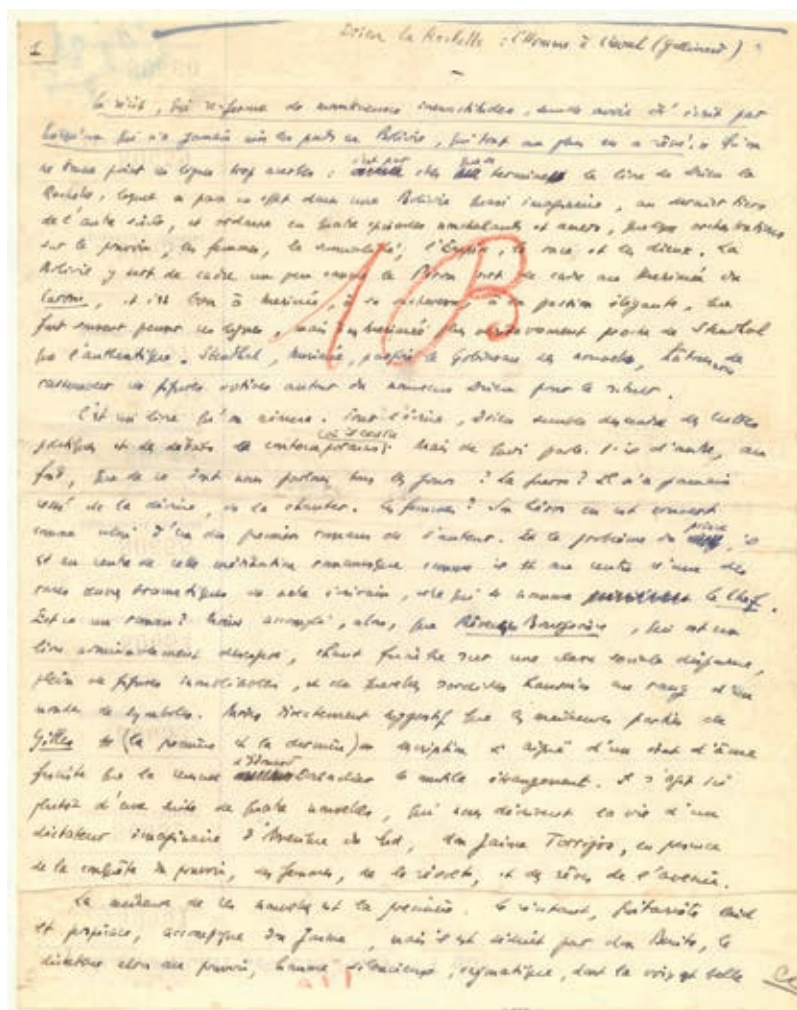 1
Drieu la Rochelle : l'Homme à cheval (Gallimard)
Ce récit, qui renferme de nombreuses inexactitudes, semble avoir été écrit par
quelqu'un qui n'a jamais mis les pieds en Bolivie, qui tout au plus en a rêvé. » Qu'on
ne trouve point ces lignes trop : c'est par elles que se termine le livre de Drieu la
Rochelle, lequel se passe en effet dans une Bolivie aussi imaginaire, au dernier tiers
de l'autre siècle, et en quatre épisodes nonchalants et amers, quelques
sur le pouvoir, les femmes, la sensualité, l'Empire, la race et les dieux. La
Bolivie y sert de cadre un peu comme le Pérou sert de cadre au Mérimée du
Carrosse, et c'est bien à Mérimée, à sa sécheresse, à sa passion élégante, que
font souvent penser ces lignes, mais à un Mérimée plus proche de Stendhal
que l'authentique. Stendhal, Mérimée, parfois le Gobineau des nouvelles, hâtons-nous de
rassembler ces figures autour du nouveau Drieu pour le situer.
C'est un livre qu'on aimera. Pour l'écrire, Drieu semble descendre des luttes
politiques et des débats contemporains. Mais de quoi parle-t-il d'autre, au
fond, que de ce dont nous parlons tous les jours ? La guerre ? Il n'a jamais
cessé de la décrire, ou la chanter. Les femmes ? Son héros en est couvert
comme celui d'un des premiers romans de l'auteur. Et le problème du, il
est au centre de cette méditation romanesque comme il est au centre d'une des
rares œuvres dramatiques de notre écrivain, celle qui se nomme le Chef.
Est-ce un roman ? Moins accompli, alors, que Rêveuse Bourgeoisie, qui est un
livre admirablement, chant funèbre sur une classe sociale disparue,
plein de figures inoubliables, et de querelles sordides haussées au rang d'un
monde de symboles. Moins directement que les meilleures parties de
Gilles (la première et la dernière) description si aiguë d'un état d'âme
que la censure d'Édouard Daladier le mutile étrangement. Il s'agit ici
plutôt d'une suite de quatre nouvelles, qui nous décrivent la vie d'un
dictateur imaginaire d'Amérique du Sud, don Jaime Torrijos, en
de la conquête du pouvoir, des femmes, de la révolte, et des rêves de l'avenir.
La meilleure de ces nouvelles est la première. Le récitant, guitariste laid
et, accompagne don Jaime, mais il est séduit par don Benito, le
dictateur alors au pouvoir, homme silencieux, énigmatique, dont la voix est belle
1B